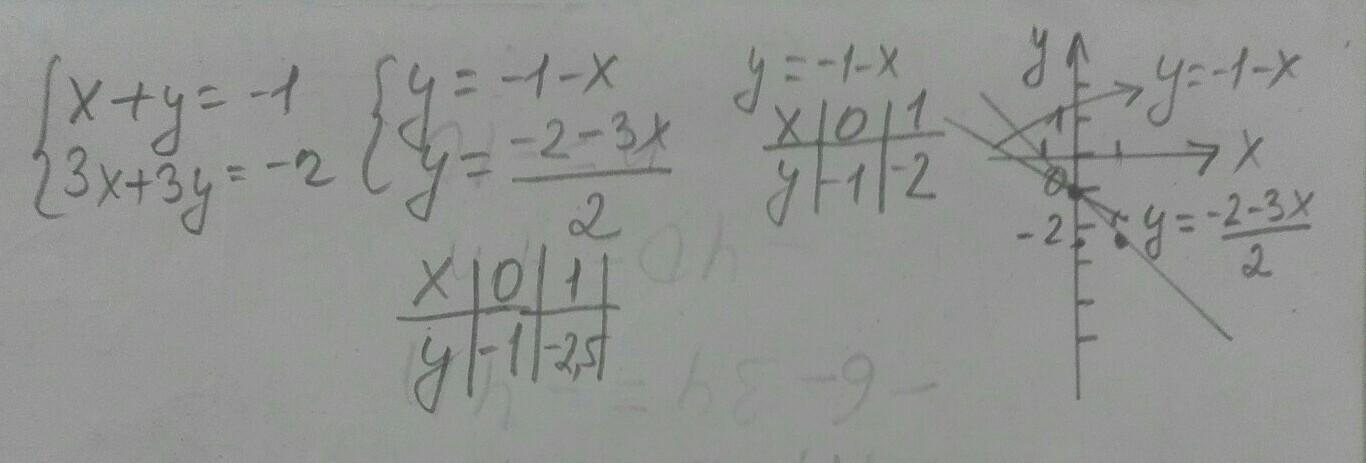 { x + y = -1
3x + 3y = -2
{ y = -1 - x
y = (-2 - 3x)/2
x | 0 | 1
y | -1 | -2,5
y = -1 - x
x | 0 | 1
y | -1 | -2
y
y = -1 - x
1
1
x
0
-2
y = (-2 - 3x)/2